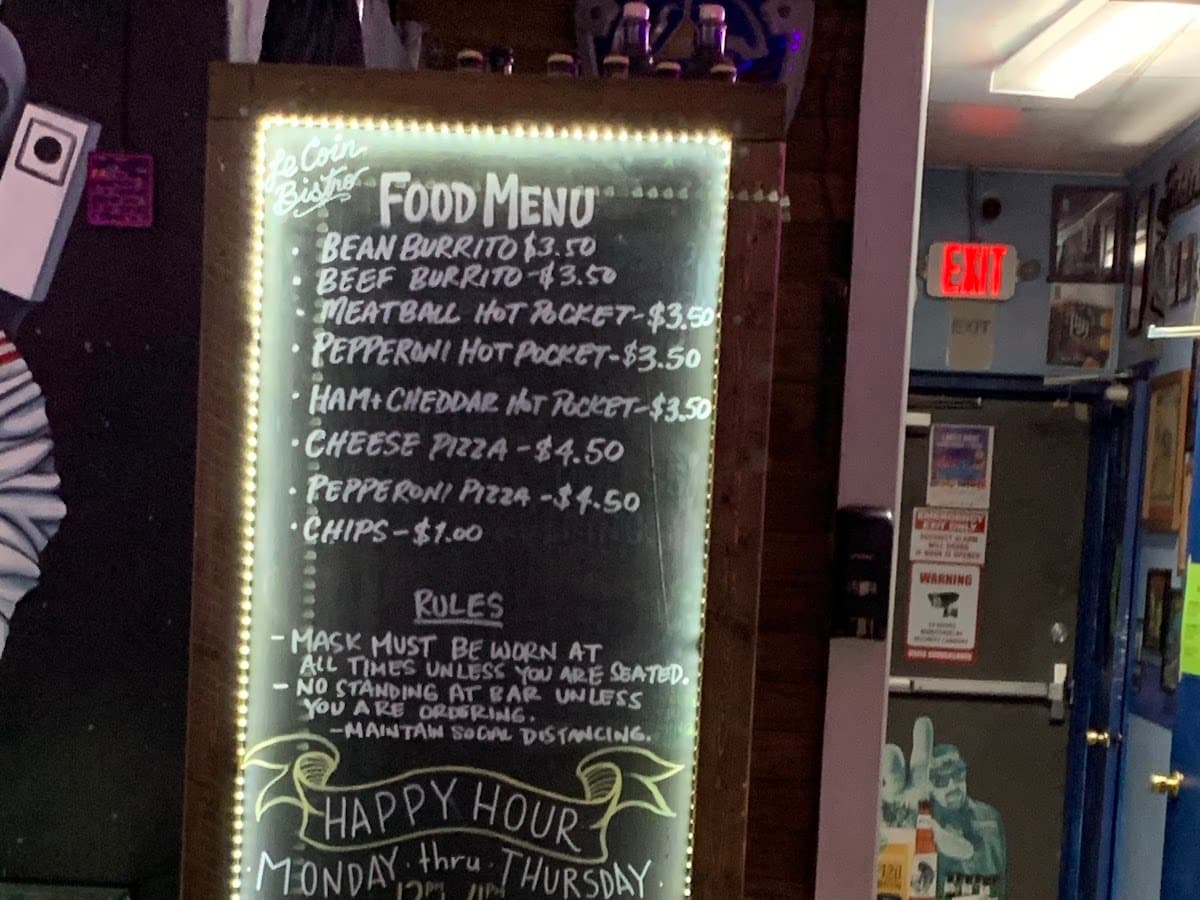 Le Coin
Bistro
FOOD MENU
• BEAN BURRITO $3.50
• BEEF BURRITO-$3.50
• MEATBALL HOT POCKET-$3.50
• PEPPERONI HOT POCKET-$3.50
• HAM+CHEDDAR HOT POCKET-$3.50
• CHEESE PIZZA-$4.50
• PEPPERONI PIZZA-$4.50
• CHIPS-$1.00
RULES
- MASK MUST BE WORN AT
ALL TIMES UNLESS YOU ARE SEATED.
- NO STANDING AT BAR UNLESS
YOU ARE ORDERING.
-MAINTAIN SOCIAL DISTANCING.
HAPPY HOUR
• MONDAY • thru • THURSDAY •
EXIT
EXIT
EMERGENCY
EXIT ONLY
SECURITY ALARM
WILL SOUND
IF DOOR IS OPENED
WARNING